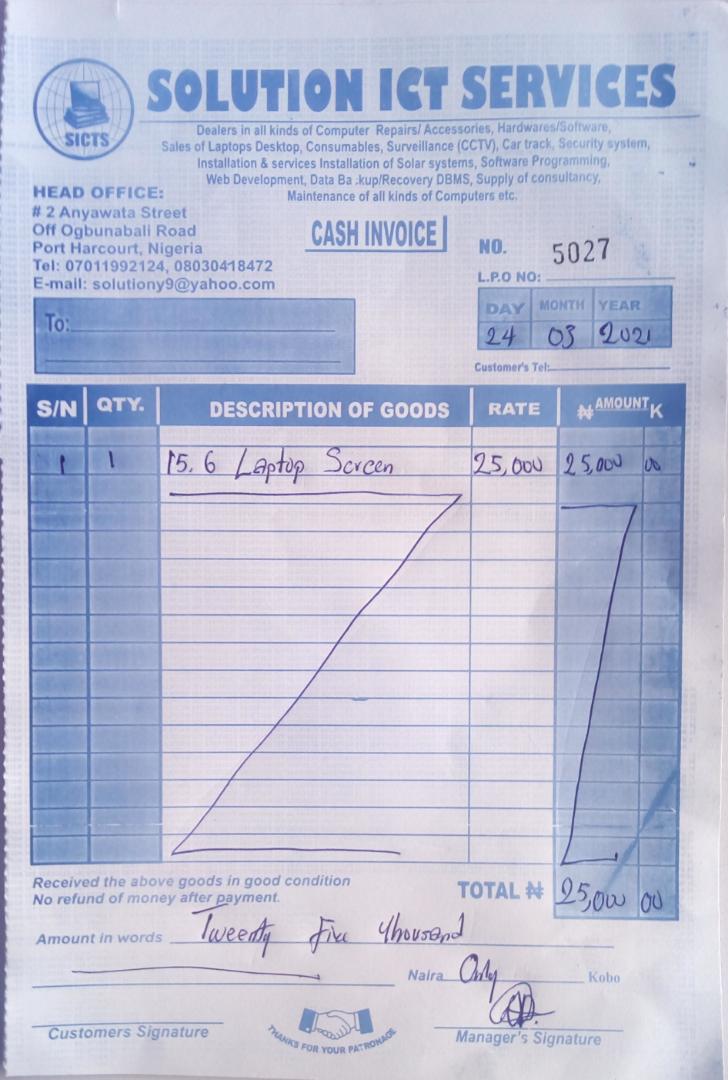 SICTS
SOLUTION ICT SERVICES
Dealers in all kinds of Computer Repairs/ Accessories, Hardwares/Software,
Sales of Laptops Desktop, Consumables, Surveillance (CCTV), Car track, Security system,
Installation & services Installation of Solar systems, Software Programming,
Web Development, Data Ba .kup/Recovery DBMS, Supply of consultancy,
Maintenance of all kinds of Computers etc.
HEAD OFFICE:
# 2 Anyawata Street
Off Ogbunabali Road
Port Harcourt, Nigeria
Tel: 07011992124, 08030418472
E-mail: solutiony9@yahoo.com
CASH INVOICE
NO. 5027
L.P.O NO:
To:
DAY MONTH YEAR
24 03 2021
Customer's Tel:
S/N QTY. DESCRIPTION OF GOODS RATE ₦ AMOUNT K
1 1 15.6 Laptop Screen 25,000 25,000 00
Received the above goods in good condition
No refund of money after payment.
TOTAL ₦ 25,000 00
Amount in words Tweenty Five thousand
Naira Only Kobo
Customers Signature
THANKS FOR YOUR PATRONAGE
Manager's Signature